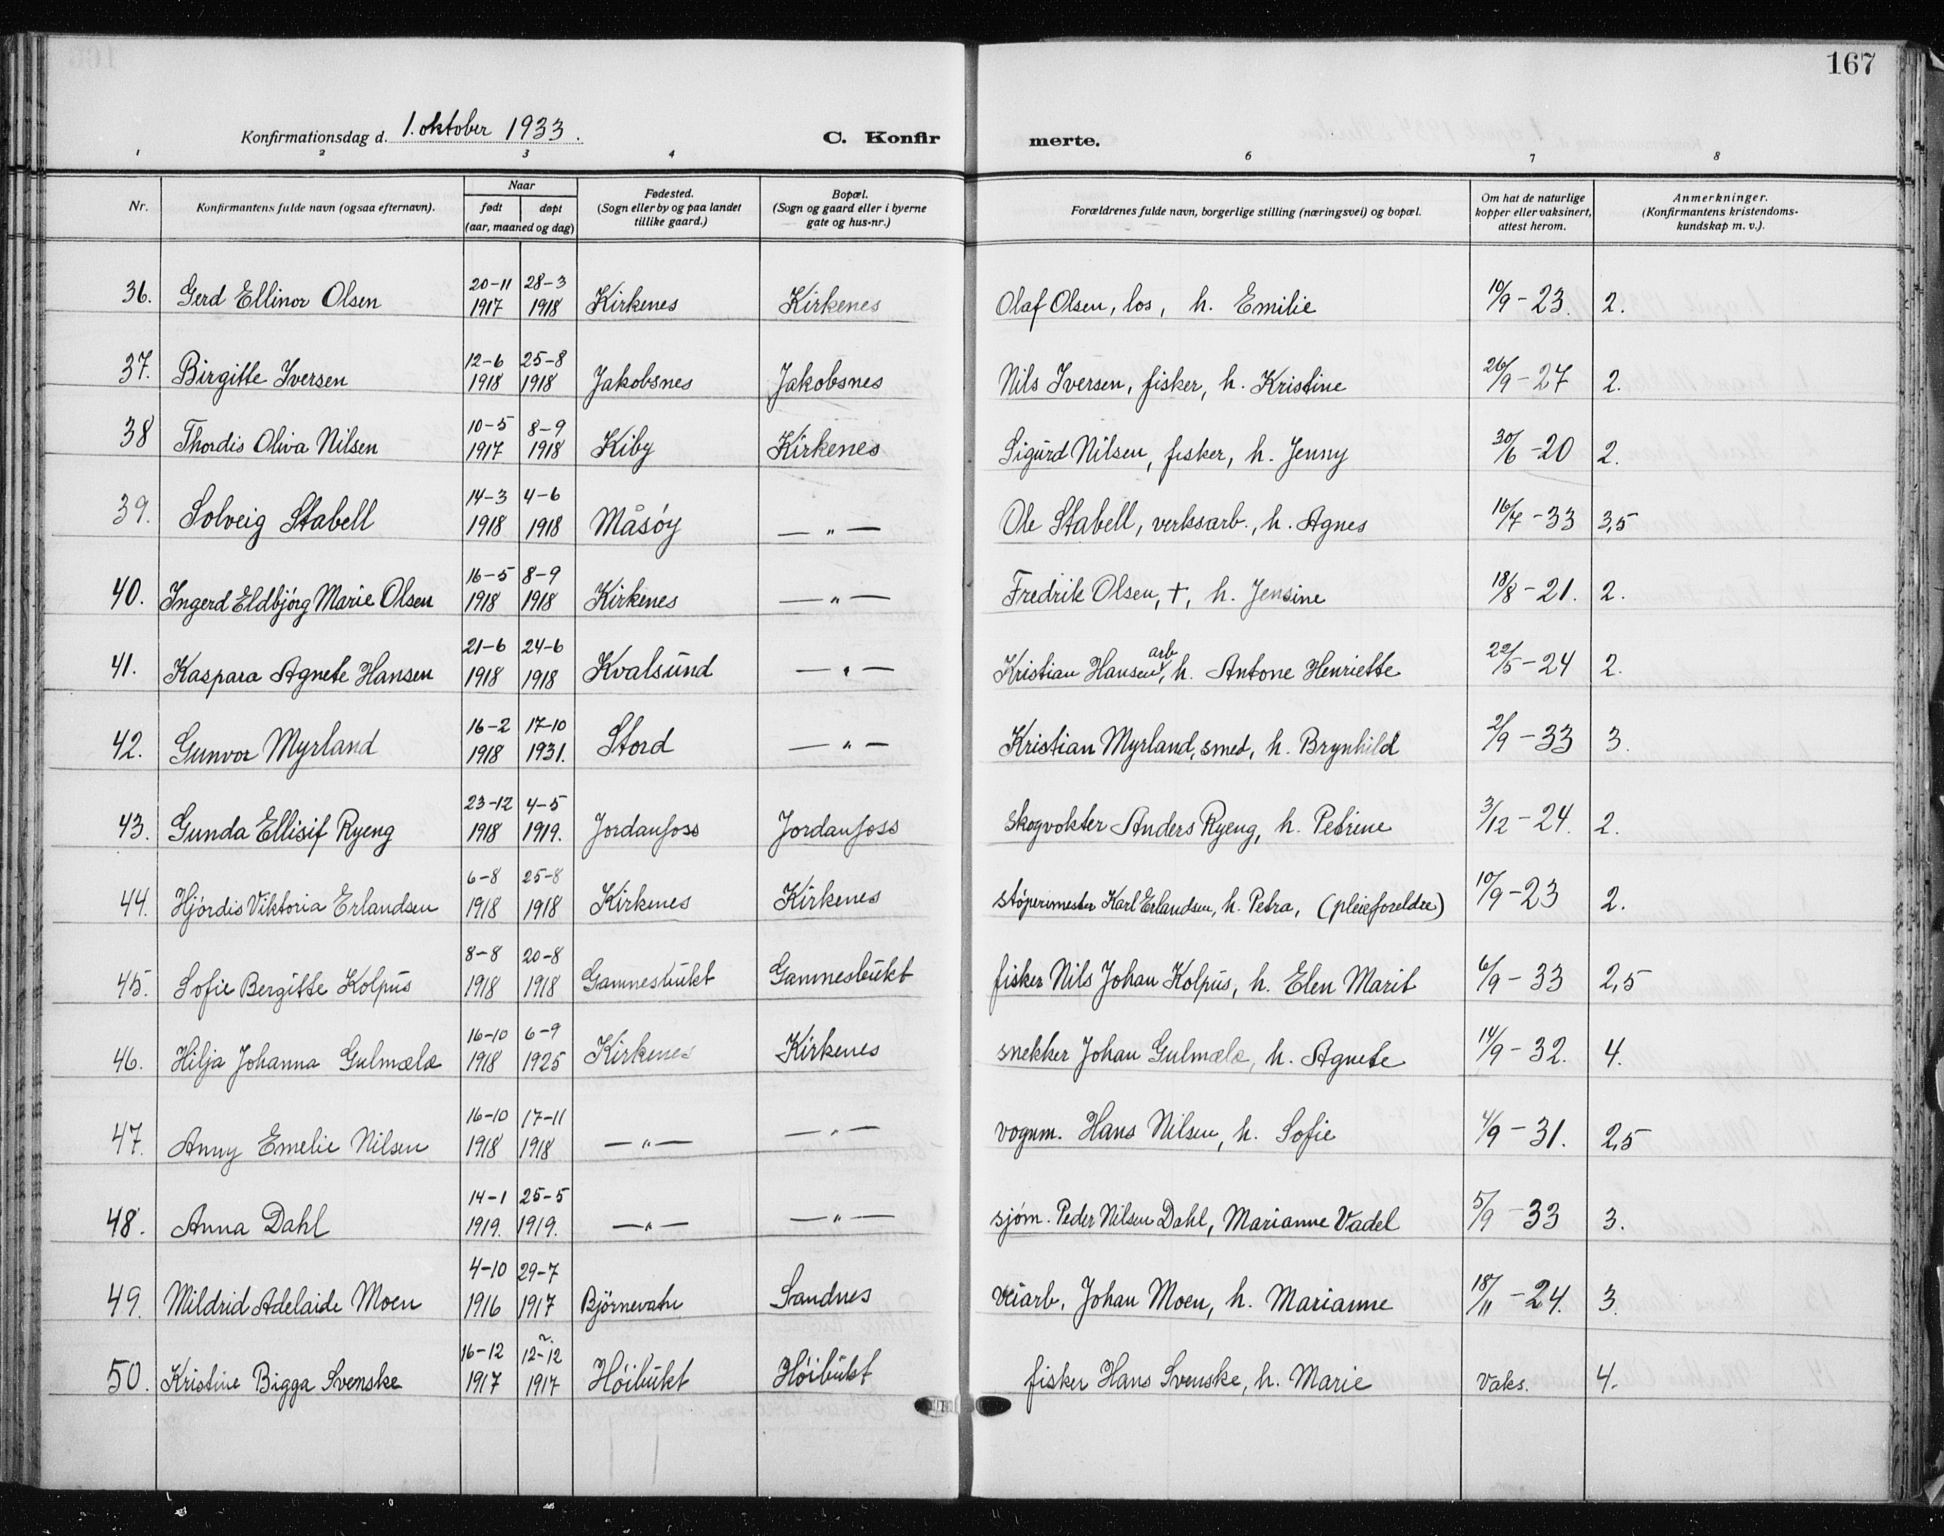 167
Konfirmationsdag d. 1. oktober 1933.
C. Konfirmerte.
1 2 3 4 6 7 8
Nr.
Konfirmantens fulde navn (ogsaa efternavn).
Naar
født
døpt
(aar, maaned og dag)
Fødested.
(Sogn eller by og paa landet
tillike gaard.)
Bopæl.
(Sogn og gaard eller i byerne
gate og hus-nr.)
Forældrenes fulde navn, borgerlige stilling (næringsvei) og bopæl.
Om hat de naturlige
kopper eller vaksinert,
attest herom.
Anmerkninger.
(Konfirmantens kristendoms-
kundskap m. v.).
36. Gerd Ellinor Olsen 20-11 1917 28-3 1918 Kirkenes Kirkenes Olaf Olsen, los, h. Emilie 10/9-23. 2.
37. Birgitte Iversen 12-6 1918 25-8 1918 Jakobsnes Jakobsnes Nils Iversen, fisker, h. Kristine 26/9-27 2.
38 Thordis Oliva Nilsen 10-5 1917 8-9 1918 Kiby Kirkenes Sigurd Nilsen, fisker, h. Jenny 30/6-20 2.
39. Solveig Stabell 14-3 1918 4-6 1918 Måsøy — " — Ole Stabell, verksarb., h. Agnes 16/7-33 3,5
40. Ingerd Eldbjörg Marie Olsen 16-5 1918 8-9 1918 Kirkenes — " — Fredrik Olsen, +, h. Jensine 18/8-21. 2.
41. Kaspara Agnete Hansen 21-6 1918 24-6 1918 Kvalsund — " — Kristian Hansen, arb h. Antone Henriette 22/5-24 2.
42. Gunvor Myrland 16-2 1918 17-10 1931. Stord — " — Kristian Myrland, smed, h. Brynhild 2/9-33 3.
43. Gunda Ellisif Ryeng 23-12 1918 4-5 1919. Jordanfoss Jordanfoss skogvokter Anders Ryeng, h. Petrine 3/12-24. 2.
44. Hjördis Viktoria Erlandsen 6-8 1918 25-8 1918 Kirkenes Kirkenes støperimester Karl Erlandsen, h. Petra, (pleieforeldre) 10/9-23 2.
45. Sofie Bergitte Kolpus 8-8 1918 20-8 1918 Gamnesbukt Gamnesbukt fisker Nils Johan Kolpus, h. Elen Marit 6/9-33 2,5
46. Hilja Johanna Gulmælæ 16-10 1918 6-9 1925 Kirkenes Kirkenes snekker Johan Gulmælæ, h. Agnete 14/9-32. 4.
47. Anny Emelie Nilsen 16-10 1918 17-11 1918 — " — — " — vognm. Hans Nilsen, h. Sofie 4/9-31. 2,5
48. Anna Dahl 14-1 1919. 25-5 1919. — " — — " — sjóm. Peder Nilsen Dahl, Marianne Vadel 5/9-33 3.
49. Mildrid Adelaide Moen 4-10 1916 29-7 1917 Björnevatn Sandnes veiarb. Johan Moen, h. Marianne 18/11-24. 3.
50. Kristine Bigga Svenske 16-12 1917 12-12 1917 Höibukt Höibukt fisker Hans Svenske, h. Marie Vaks. 4.